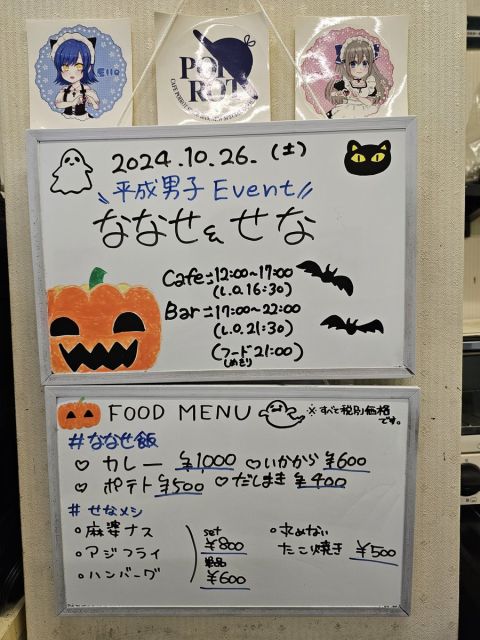 Ello
POI
ROT
2024.10.26.(土)
平成男子 Event
ななせ&せな
Cafe:12:00~17:00
(L.O.16:30)
Bar:17:00~22:00
(L.O.21:30)
(フード21:00)
しめきり
FOOD MENU
※すべて税別価格
です。
#ななせ飯
♡カレー ¥1000 ♡いかから ¥600
♡ポテト ¥500 ♡だしまき ¥400
#せなメシ
・麻婆ナス
・アジフライ
・ハンバーグ
set
¥800
単品
¥600
・求めない
たこ焼き ¥500